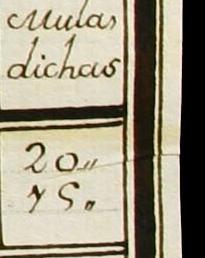 Mulas
dichas
20„
75„